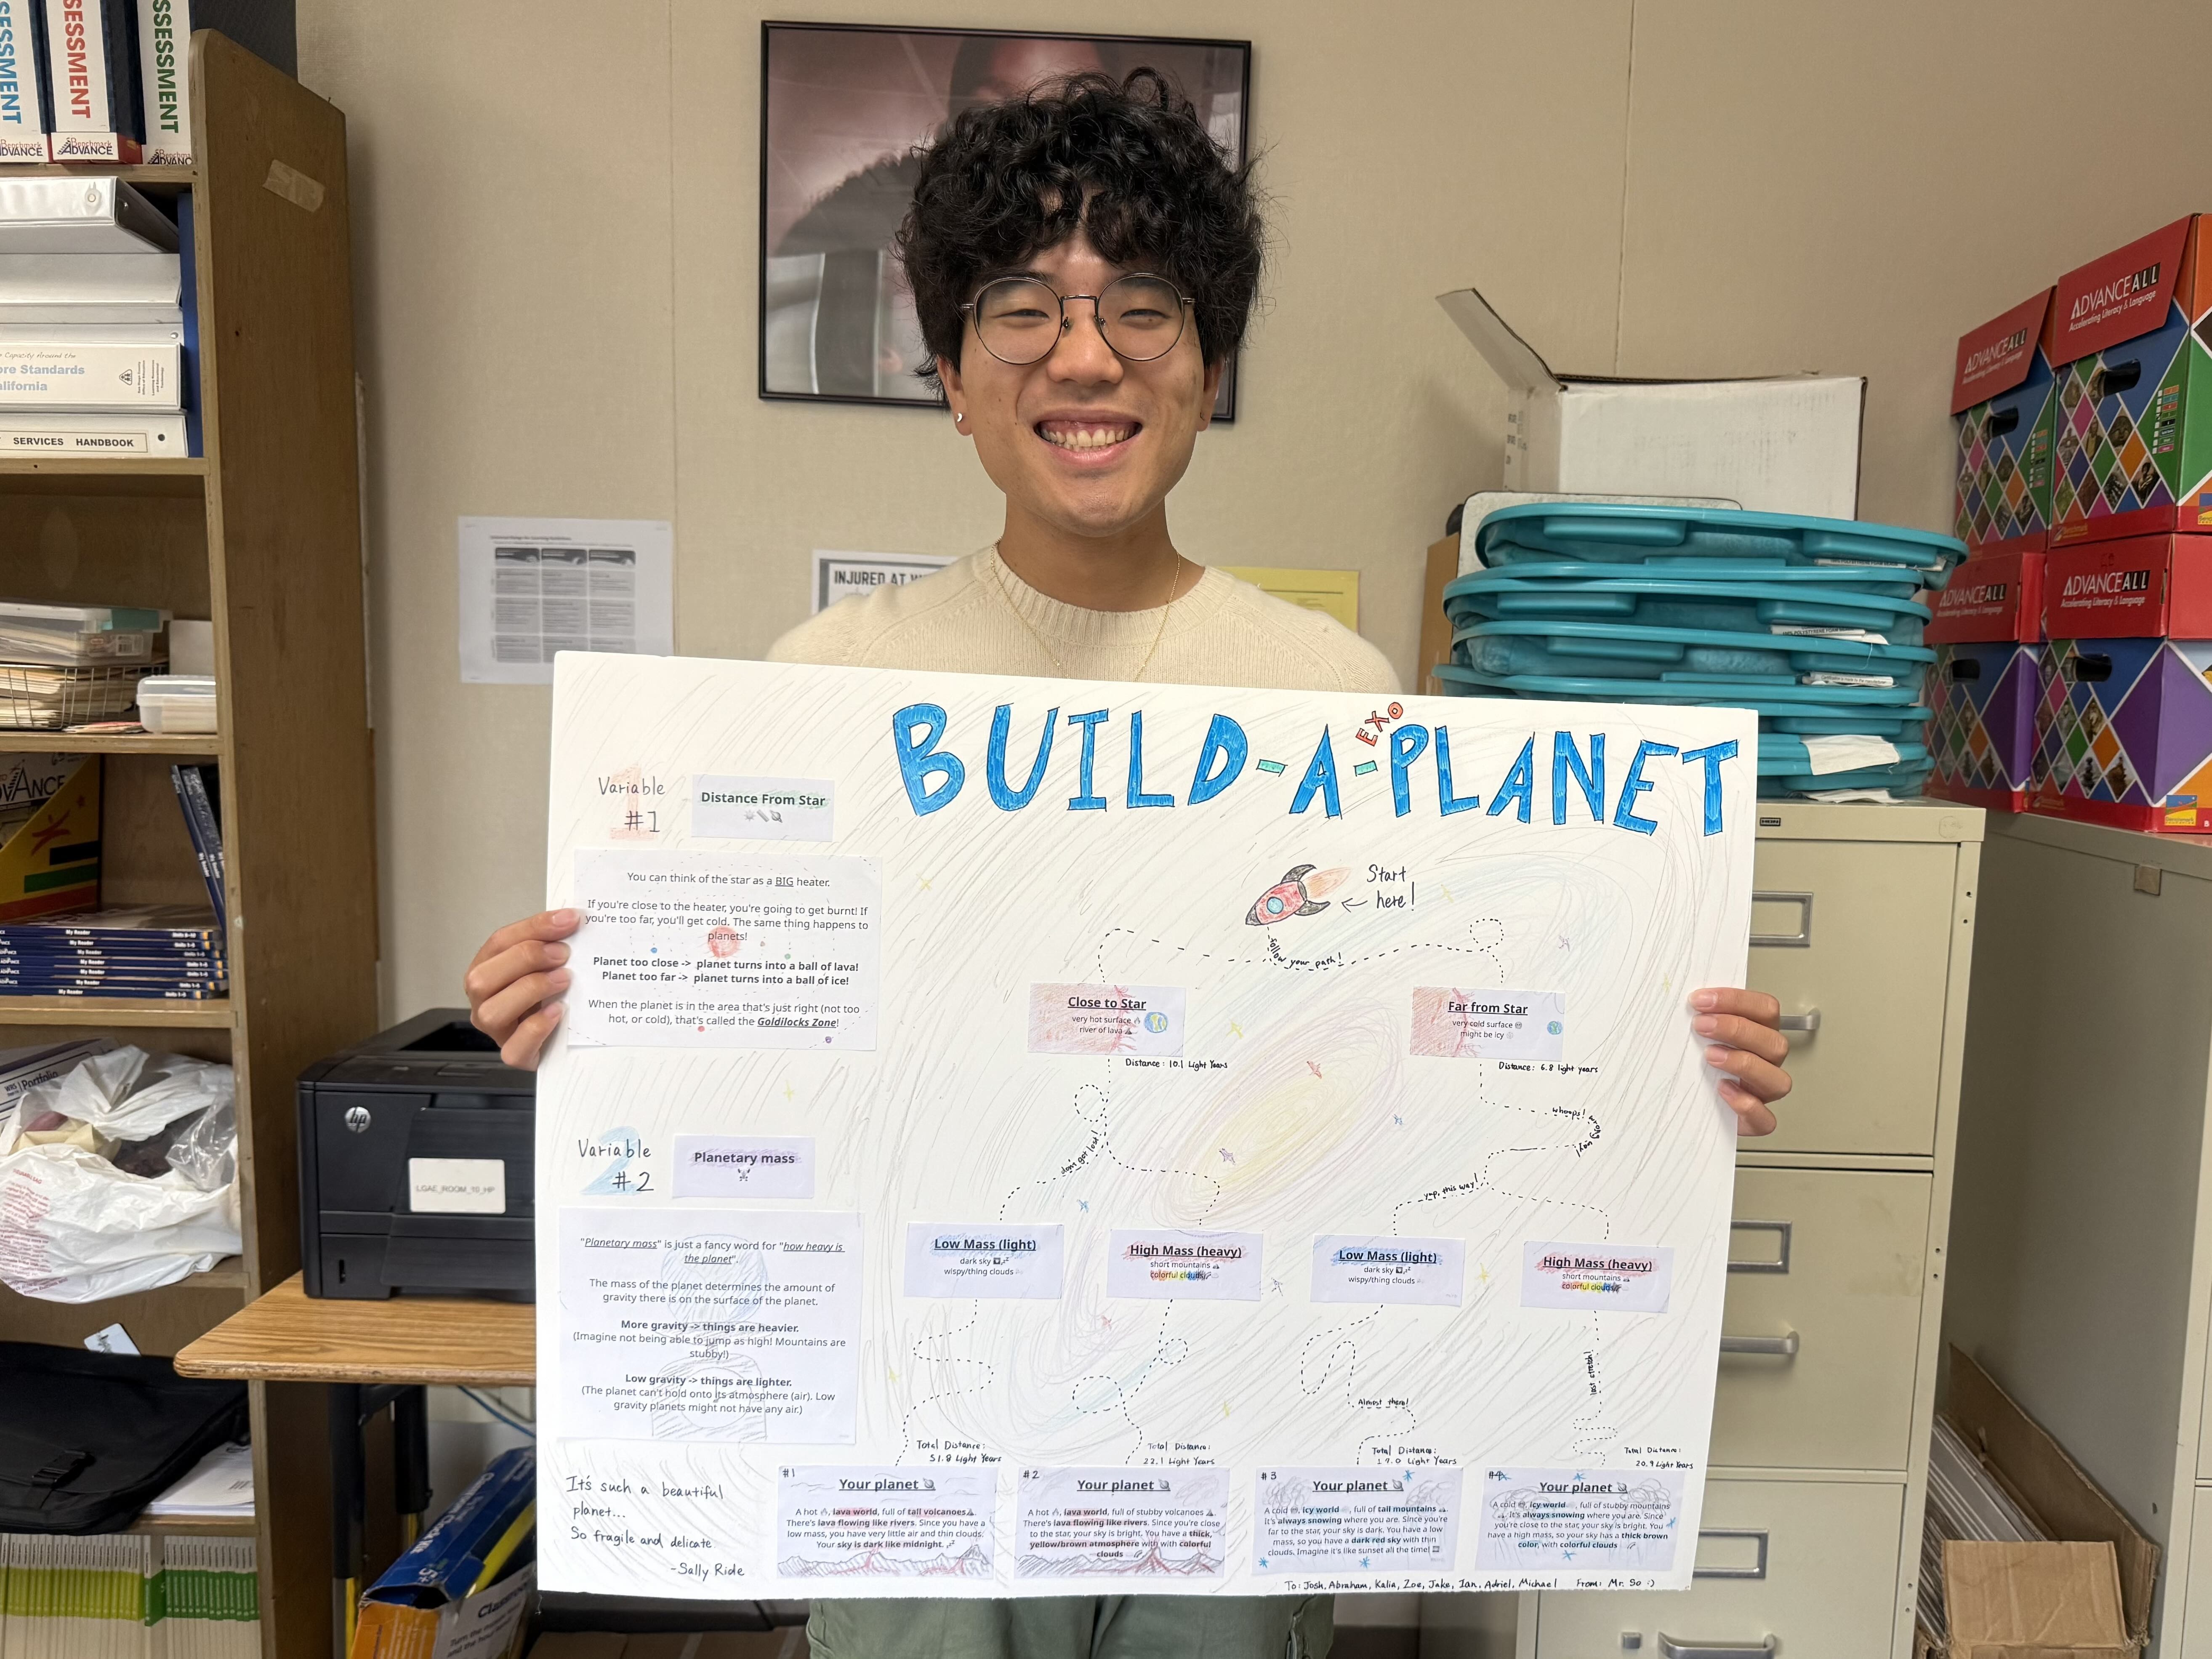 SESSMENT
SESSMENT
SESSMENT
Benchmark
ADVANCE
Benchmark
ADVANCE
Benchmark
ADVANC
Capacity Around the
ore Standards
alifornia
SERVICES HANDBOOK
INJURED AT W
ADVANCE ALL
Accelerating Literacy & Language
ADVANCE ALL
Accelerating Literacy & Language
ADVANCE ALL
Accelerating Literacy & Language
ADVANCE ALL
Accelerating Literacy & Language
BUILD-A-PLANET
EXO
Variable
#1
Distance From Star
You can think of the star as a BIG heater.
If you're close to the heater, you're going to get burnt! If
you're too far, you'll get cold. The same thing happens to
planets!
Planet too close -> planet turns into a ball of lava!
Planet too far -> planet turns into a ball of ice!
When the planet is in the area that's just right (not too
hot, or cold), that's called the Goldilocks Zone!
Start
here!
follow your path!
Close to Star
very hot surface
river of lava
Distance: 10.1 Light Years
Far from Star
very cold surface
might be icy
Distance: 6.8 light years
don't get lost!
whoops! wrong way!
yup, this way!
Variable
#2
Planetary mass
"Planetary mass" is just a fancy word for "how heavy is
the planet".
The mass of the planet determines the amount of
gravity there is on the surface of the planet.
More gravity -> things are heavier.
(Imagine not being able to jump as high! Mountains are
stubby!)
Low gravity -> things are lighter.
(The planet can't hold onto its atmosphere (air). Low
gravity planets might not have any air.)
Low Mass (light)
dark sky
wispy/thing clouds
High Mass (heavy)
short mountains
colorful clouds
Low Mass (light)
dark sky
wispy/thing clouds
High Mass (heavy)
short mountains
colorful clouds
Almost there!
last stretch!
Total Distance:
51.8 Light Years
Total Distance:
22.1 Light Years
Total Distance:
17.0 Light Years
Total Distance:
20.9 Light Years
It's such a beautiful
planet...
So fragile and delicate.
-Sally Ride
#1
Your planet
A hot, lava world, full of tall volcanoes.
There's lava flowing like rivers. Since you have a
low mass, you have very little air and thin clouds.
Your sky is dark like midnight.
#2
Your planet
A hot, lava world, full of stubby volcanoes.
There's lava flowing like rivers. Since you're close
to the star, your sky is bright. You have a thick,
yellow/brown atmosphere with with colorful
clouds
#3
Your planet
A cold, icy world, full of tall mountains.
It's always snowing where you are. Since you're
far to the star, your sky is dark. You have a low
mass, so you have a dark red sky with thin
clouds. Imagine it's like sunset all the time!
#4
Your planet
A cold, icy world, full of stubby mountains
. It's always snowing where you are. Since
you're close to the star, your sky is bright. You
have a high mass, so your sky has a thick brown
color, with colorful clouds
To: Josh, Abraham, Kalia, Zoe, Jake, Ian, Adriel, Michael From: Mr. So :)
hp
LGAE_ROOM_10_HP
Portfolio
My Reader